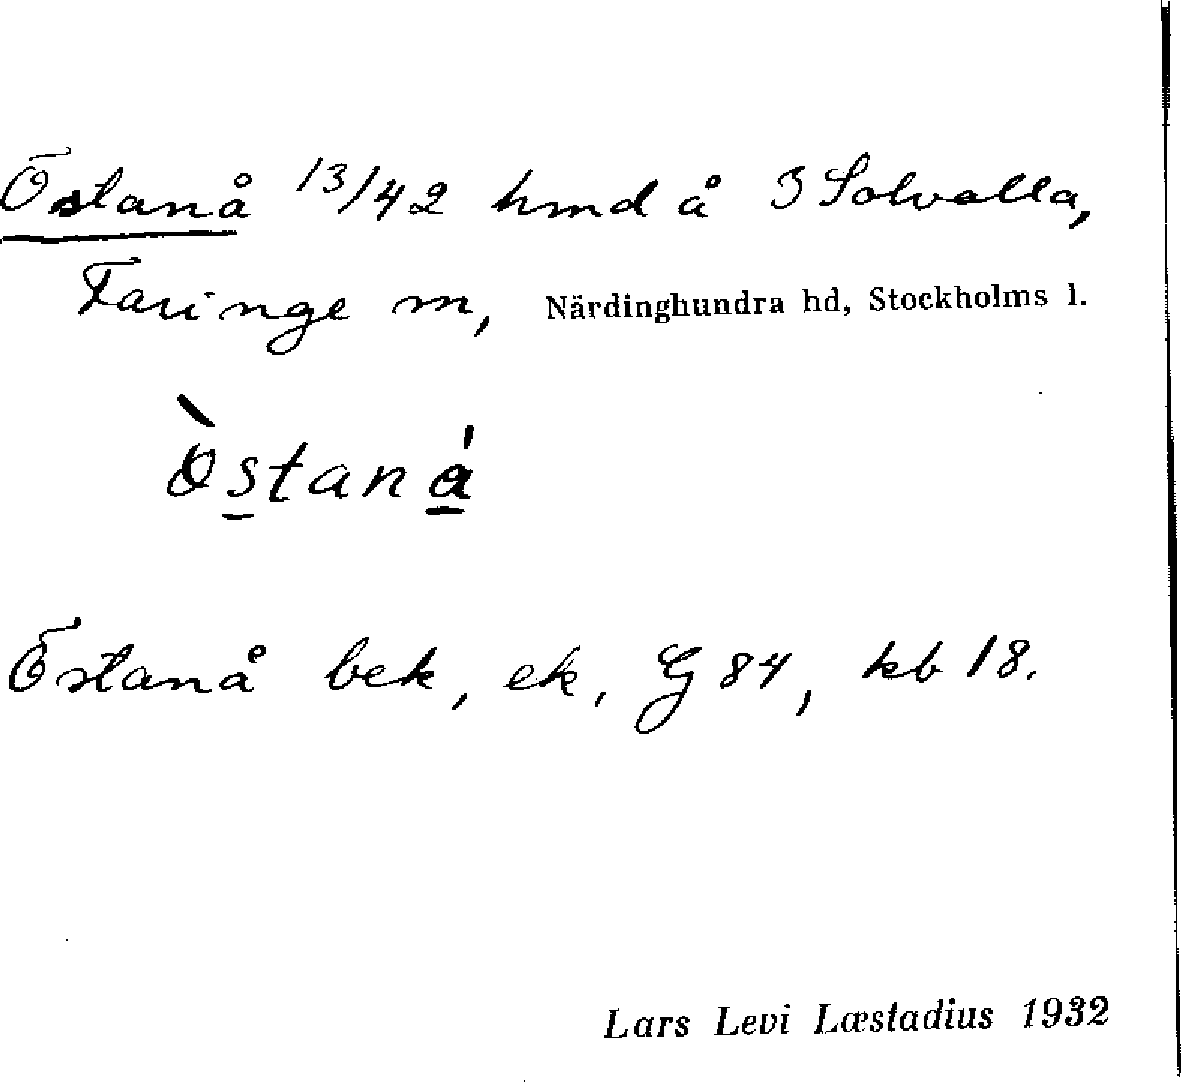 Östanå 13/42 hmd å 3 Solvalla,
Faringe sn, Närdinghundra hd, Stockholms l.
Òstaná
Östanå bek, ek, G 84, kb 18.
Lars Levi Læstadius 1932